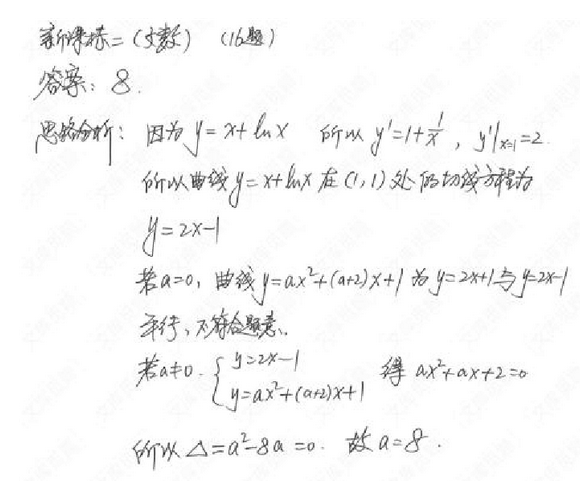 新课标二(文数) (16题)
答案: 8.
思路分析: 因为 y=x+lnx 所以 y'=1+1/x, y'|x=1=2.
所以曲线 y=x+lnx 在(1,1)处的切线方程为
y=2x-1
若a=0, 曲线y=ax²+(a+2)x+1为y=2x+1与y=2x-1
平行, 不符合题意.
若a≠0. { y=2x-1
y=ax²+(a+2)x+1 得 ax²+ax+2=0
所以 △=a²-8a=0. 故a=8.